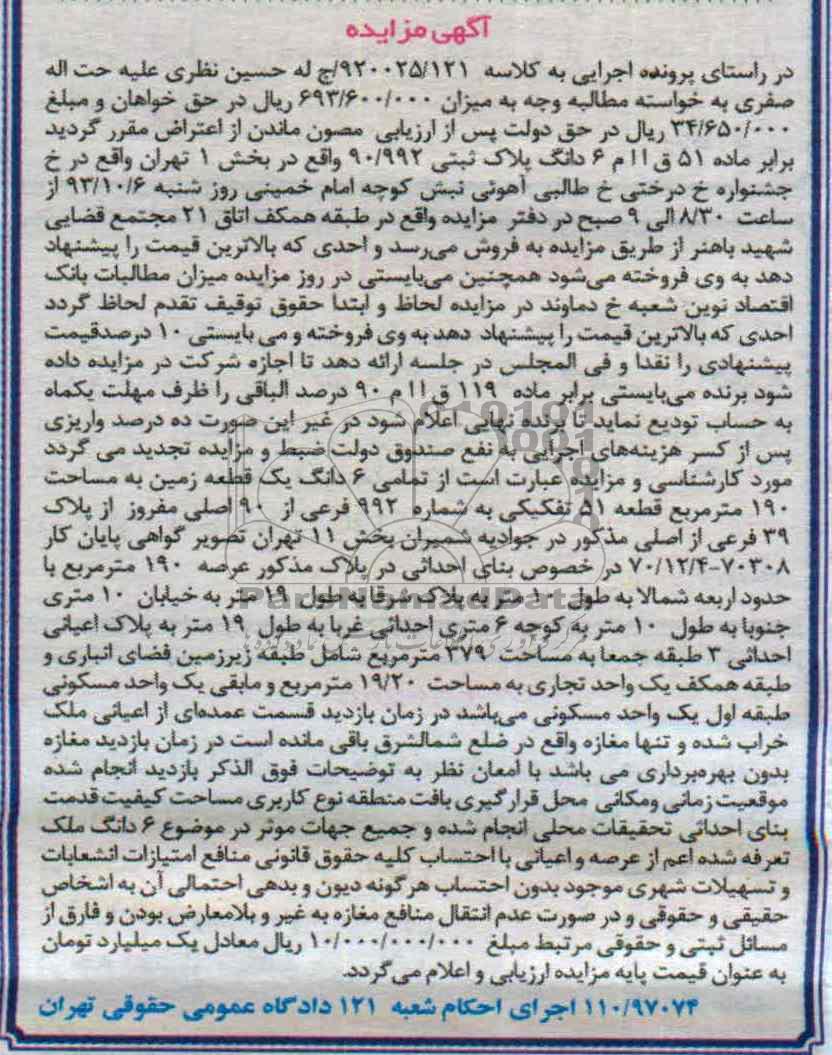 آگهی مزایده
در راستای پرونده اجرایی به کلاسه ۹۲۰۰۲۵/۱۲۱/ج له حسین نظری علیه حت اله
صفری به خواسته مطالبه وجه به میزان ۶۹۳/۶۰۰/۰۰۰ ریال در حق خواهان و مبلغ
۳۴/۶۵۰/۰۰۰ ریال در حق دولت پس از ارزیابی مصون ماندن از اعتراض مقرر گردید
برابر ماده ۵۱ ق ا ا م ۶ دانگ پلاک ثبتی ۹۰/۹۹۲ واقع در بخش ۱ تهران واقع در خ
جشنواره خ درختی خ طالبی آهوئی نبش کوچه امام خمینی روز شنبه ۹۳/۱۰/۶ از
ساعت ۸/۳۰ الی ۹ صبح در دفتر مزایده واقع در طبقه همکف اتاق ۲۱ مجتمع قضایی
شهید باهنر از طریق مزایده به فروش می‌رسد و احدی که بالاترین قیمت را پیشنهاد
دهد به وی فروخته می‌شود همچنین می‌بایستی در روز مزایده میزان مطالبات بانک
اقتصاد نوین شعبه خ دماوند در مزایده لحاظ و ابتدا حقوق توقیف تقدم لحاظ گردد
احدی که بالاترین قیمت را پیشنهاد دهد به وی فروخته و می بایستی ۱۰ درصدقیمت
پیشنهادی را نقدا و فی المجلس در جلسه ارائه دهد تا اجازه شرکت در مزایده داده
شود برنده می‌بایستی برابر ماده ۱۱۹ ق ا ا م ۹۰ درصد الباقی را ظرف مهلت یکماه
به حساب تودیع نماید تا برنده نهایی اعلام شود در غیر این صورت ده درصد واریزی
پس از کسر هزینه‌های اجرایی به نفع صندوق دولت ضبط و مزایده تجدید می گردد
مورد کارشناسی و مزایده عبارت است از تمامی ۶ دانگ یک قطعه زمین به مساحت
۱۹۰ مترمربع قطعه ۵۱ تفکیکی به شماره ۹۹۲ فرعی از ۹۰ اصلی مفروز از پلاک
۳۹ فرعی از اصلی مذکور در جوادیه شمیران بخش ۱۱ تهران تصویر گواهی پایان کار
۷۰/۱۲/۴-۷۰۳۰۸ در خصوص بنای احداثی در پلاک مذکور عرصه ۱۹۰ مترمربع با
حدود اربعه شمالا به طول ۱۰ متر به پلاک شرقا به طول ۱۹ متر به خیابان ۱۰ متری
جنوبا به طول ۱۰ متر به کوچه ۶ متری احداثی غربا به طول ۱۹ متر به پلاک اعیانی
احداثی ۳ طبقه جمعا به مساحت ۳۷۹ مترمربع شامل طبقه زیرزمین فضای انباری و
طبقه همکف یک واحد تجاری به مساحت ۱۹/۲۰ مترمربع و مابقی یک واحد مسکونی
طبقه اول یک واحد مسکونی می‌باشد در زمان بازدید قسمت عمده‌ای از اعیانی ملک
خراب شده و تنها مغازه واقع در ضلع شمالشرق باقی مانده است در زمان بازدید مغازه
بدون بهره‌برداری می باشد با امعان نظر به توضیحات فوق الذکر بازدید انجام شده
موقعیت زمانی ومکانی محل قرار گیری بافت منطقه نوع کاربری مساحت کیفیت قدمت
بنای احداثی تحقیقات محلی انجام شده و جمیع جهات موثر در موضوع ۶ دانگ ملک
تعرفه شده اعم از عرصه و اعیانی با احتساب کلیه حقوق قانونی منافع امتیازات انشعابات
و تسهیلات شهری موجود بدون احتساب هرگونه دیون و بدهی احتمالی آن به اشخاص
حقیقی و حقوقی و در صورت عدم انتقال منافع مغازه به غیر و بلامعارض بودن و فارق از
مسائل ثبتی و حقوقی مرتبط مبلغ ۱۰/۰۰۰/۰۰۰/۰۰۰ ریال معادل یک میلیارد تومان
به عنوان قیمت پایه مزایده ارزیابی و اعلام می‌گردد.
۱۱۰/۹۷۰۷۴ اجرای احکام شعبه ۱۲۱ دادگاه عمومی حقوقی تهران
ParsNamadData